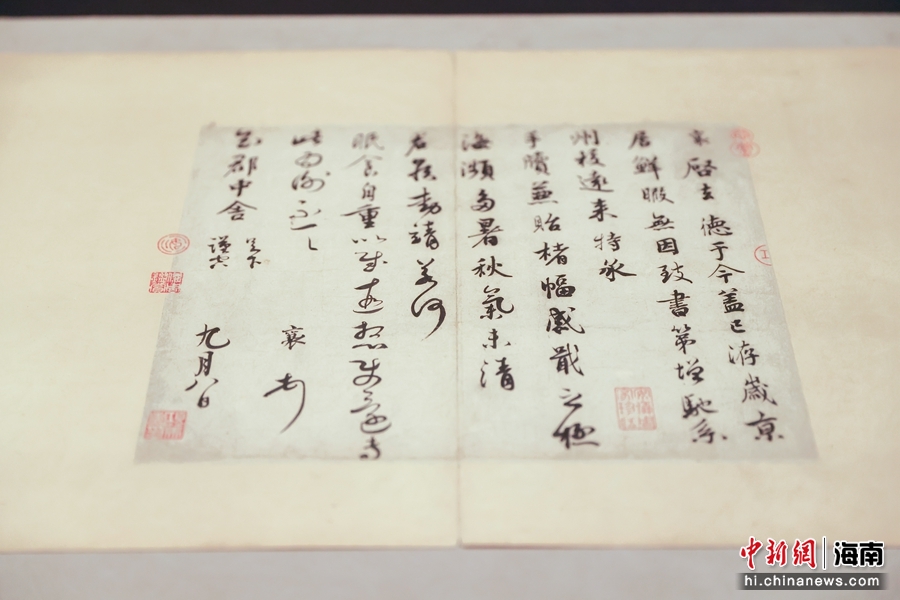 襄啓去德于今蓋已洊歲京
居鮮暇無因致書第增馳系
州校遠來特承
手牘兼貺楮幅感戢之極
海瀕多暑秋氣未清
君侯動靜若何
眠食自重以慰遠想
此為謝不一一 襄
郡中舍 足下 謹空
九月八日
中新網 海南
hi.chinanews.com